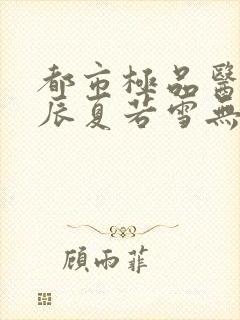 都市極品醫
辰夏若雪無
顾雨菲